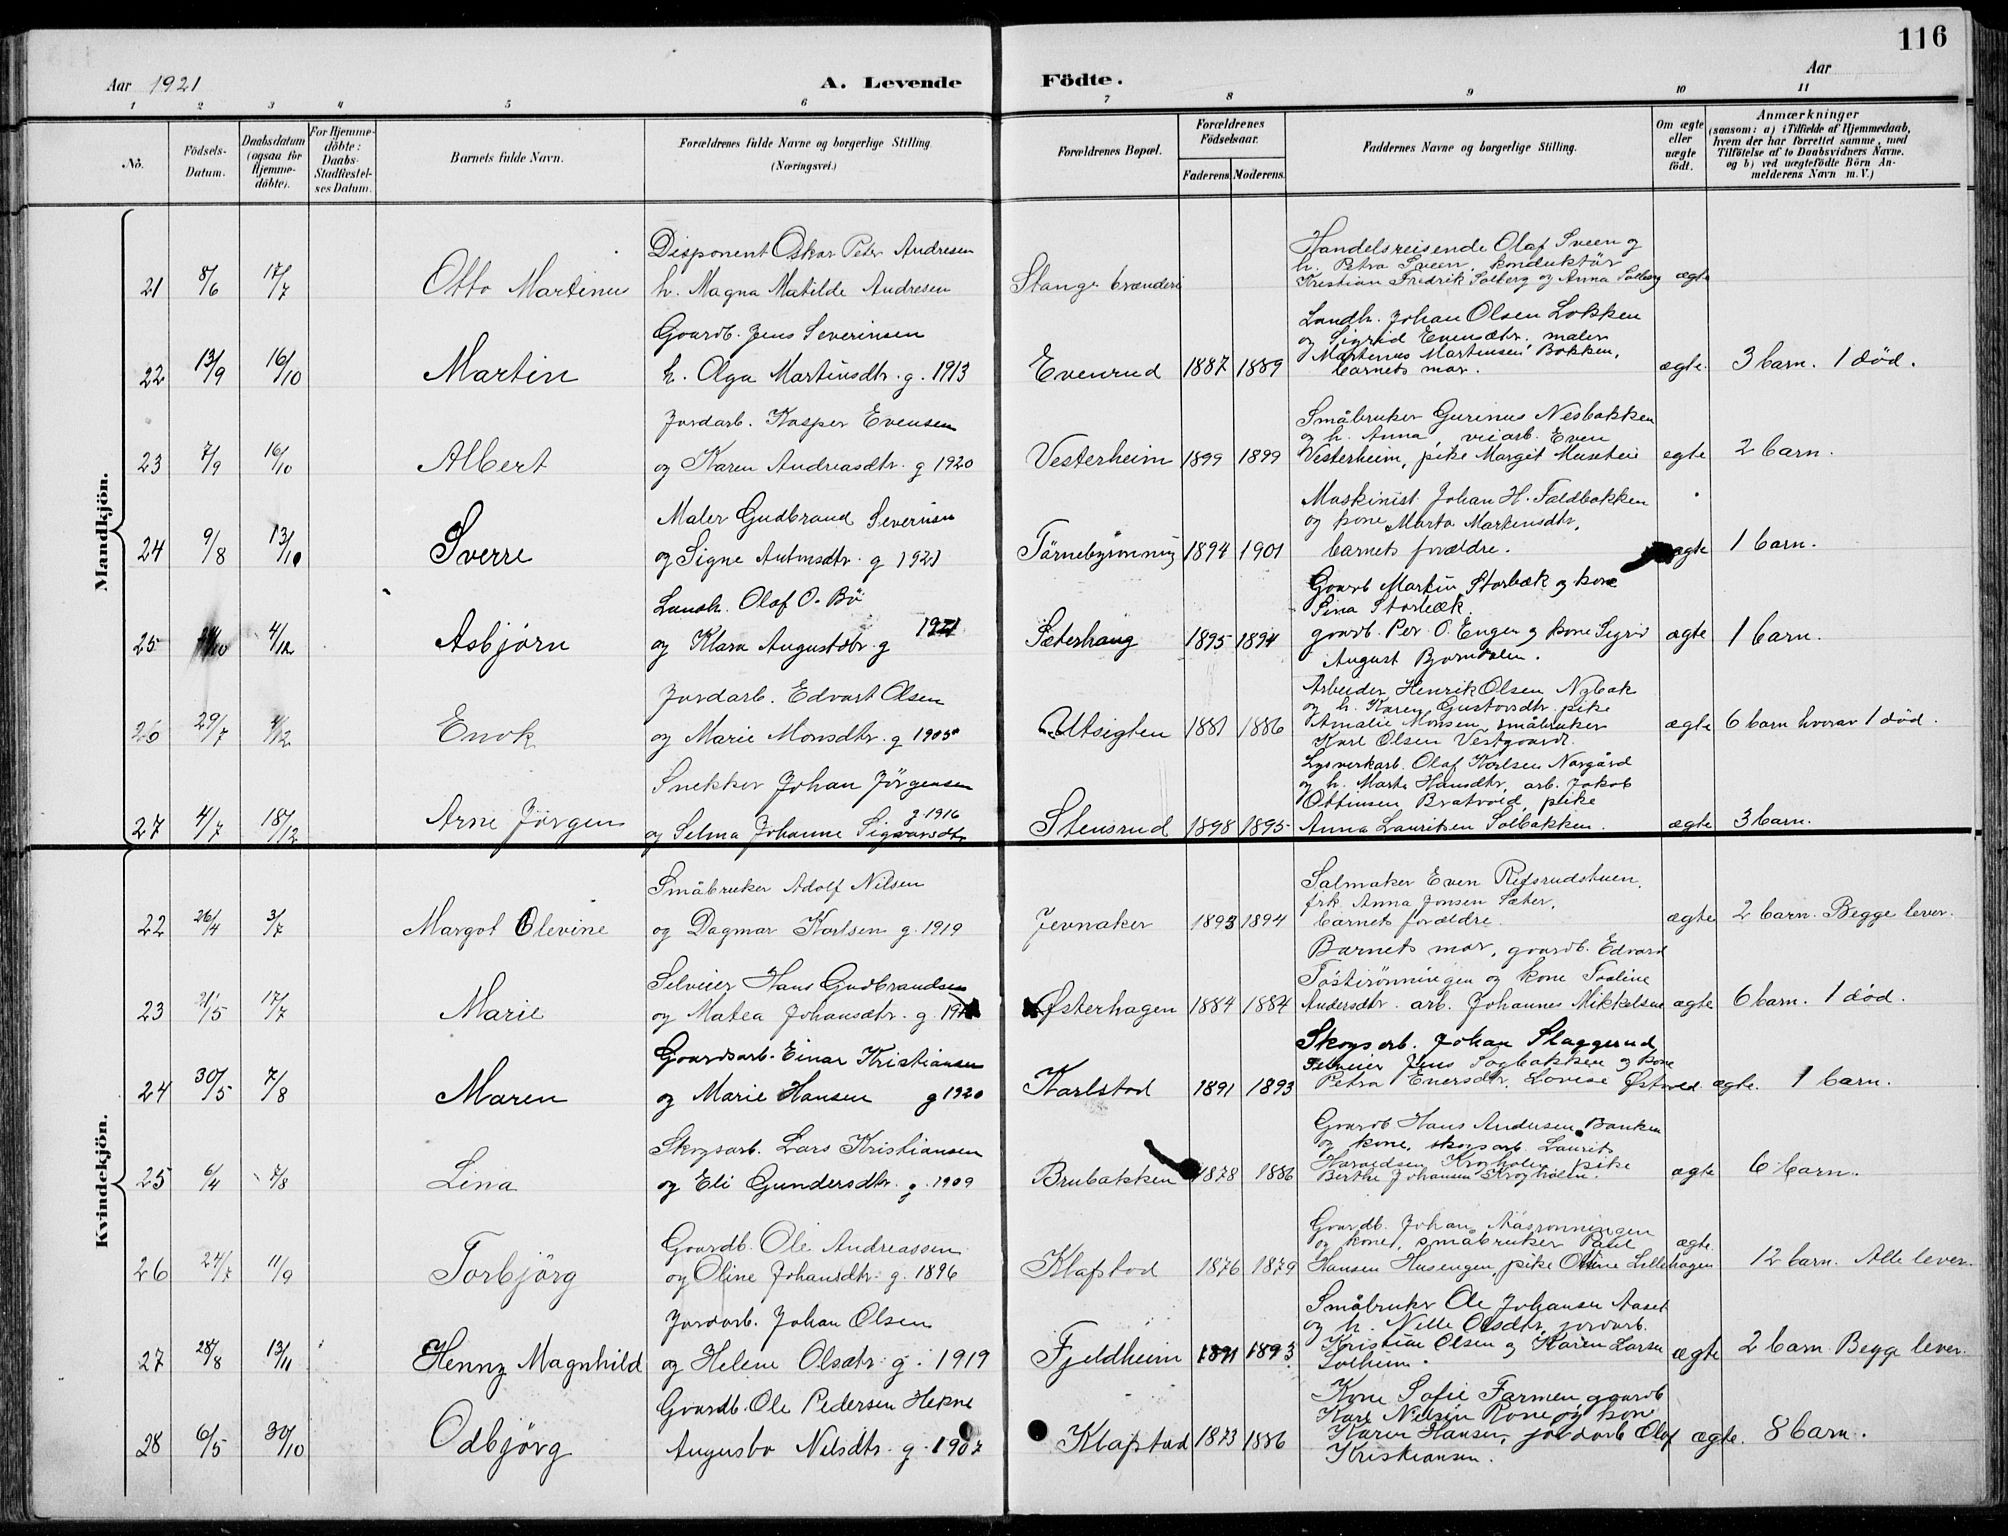 116
Aar 1921
A. Levende
Födte.
Aar
1 2 3 4 5 6 7 8 9 10 11
No.
Födsels-Datum.
Daabsdatum (ogsaa for Hjemme-döbte).
For Hjemme-döbte: Daabs-Stadfæstel-ses Datum.
Barnets fulde Navn.
Forældrenes fulde Navne og borgerlige Stilling (Næringsvei.)
Forældrenes Bopæl.
Forældrenes Födselsaar.
Faderens Moderens.
Faddernes Navne og borgerlige Stilling.
Om ægte eller uægte födt.
Anmærkninger
(saasom: a) i Tilfælde af Hjemmedaab,
hvem der har forrettet samme, med
Tilföielse af to Daabsvidners Navne.
og b) ved uægtefödte Börn An-
melderens Navn m. V.)
Mandkjön.
Disponent Oskar Peter Andresen
21 8/6 17/7 Otto Martinus h. Magna Matilde Andresen Stange brænderi
Handelsreisende Olaf Sveen og
h. Petra Sveen, konduktör
Kristian Fredrik Solberg og Anna Solberg ægte
Gaardb. Jens Severinsen
22 13/9 16/10 Martin h. Olga Martinsdtr. g. 1913 Evenrud 1887 1889
Landh. Johan Olsen Lokken
og Sigrid Evensdtr. maler
Martinus Martinsen Bakken,
barnets mor. ægte. 3 barn. 1 död.
Jordarb. Kasper Evensen
23 7/9 16/10 Albert og Karen Andreasdtr. g 1920 Vesterheim 1899 1899
Småbruker Gurinus Nesbakken
og h. Anna, veiarb. Even
Vesterheim, pike Margit Museteie ægte 2 barn.
Maler Gudbrand Severinsen
24 9/8 13/10 Sverre og Signe Antonsdtr. g 1921 Törnebyrönning 1894 1901
Maskinist Johan H. Fældbakken
og kone Marta Martinsdtr,
barnets forældre. ægte 1 barn.
Landh. Olaf O. Bö
25 4/12 Asbjörn og Klara Augustdtr. g 1921 Sæterhaug 1895 1894
Gaardb Martin Storbæk og kone
Sina Storbæk.
gaardb. Per O. Enger og kone Sigrid
August Bjorndalen. ægte 1 barn.
Jordarb. Edvart Olsen
26 29/7 4/12 Enok og Marie Monsdtr. g 1905 Utsigten 1881 1886
Arbeider Henrik Olsen Nybak
og h. Karen Gustavsdtr. pike
Amalie Monsen, småbruker
Karl Olsen Vestgaard. ægte 6 barn hvorav 1 död.
Snekker Johan Jörgensen
27 4/7 18/12 Arne Jörgen og Selma Johanne Sigvardsdtr g 1916 Stensrud 1898 1895
Lysverkarb. Olaf Karlsen Norgård
og h. Marte Hansdtr, arb. Jakob
Ottinsen Bratvold, pike
Anna Lauritsen Solbakken. ægte 3 barn.
Kvindekjön.
Småbruker Adolf Nilsen
22 26/4 3/7 Margot Olevine og Dagmar Karlsen g. 1919 Jevnaker 1893 1894
Salmaker Even Refsrudstuen,
frk. Anna Jonsen Sæter,
barnets forældre. ægte 2 barn. Begge lever.
Selveier Hans Gudbrandsen
23 21/5 17/7 Marie og Matea Johansdtr. g. Østerhagen 1884 1884
Barnets mor, gaardb. Edvard
Töstirönningen og kone Taaline
Andersdtr. arb. Johannes Mikkelsen ægte 6 barn. 1 död.
Gaardsarb. Einar Kristiansen
24 30/5 7/8 Maren og Marie Hansen g 1920 Karlstad 1891 1893
Skogsarb. Johan Slaggerud
Selveier Jens Sagbakken og kone
Petra Enersdtr, Lovise Østvold ægte. 1 barn.
Skogsarb. Lars Kristiansen
25 6/4 7/8 Lina og Eli Gundersdtr. g. 1909 Brubakken 1878 1886
Gaardb Hans Andersen Banken
og kone, skogsarb Laurits
Haraldsen Krogholen pike
Berthe Johansen Krogholen. ægte 6 barn.
Gaardb. Ole Andreassen
26 24/7 11/9 Torbjörg og Oline Johansdtr. g. 1896 Klapstad 1876 1879
Gaardb. Johan Aasronningen
og kone, småbruker Paul
Hansen Husengen, pike Oline Lillehagen ægte. 12 barn. Alle lever.
Jordarb. Johan Olsen
27 28/8 13/11 Henny Magnhild og Helene Olsdtr. g. 1919 Fjeldheim 1891 1893
Småbruker Ole Johansen Aaset
og h. Nelle Olsdtr, jordarb.
Kristian Olsen og Karen Larsen
Solheim. ægte 2 barn Begge lever.
Gaardb. Ole Pedersen Hekne
28 6/5 30/10 Odbjörg Augusta Nilsdtr. g. 1907 Klapstad 1873 1886
Kone Sofie Farmen gaardb
Karl Nilsen Rone og kone
Karen Hansen, jordarb Olaf
Kristiansen. ægte. 8 barn.